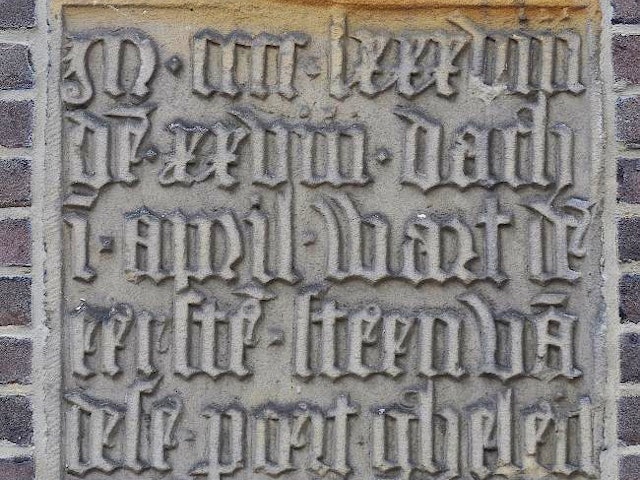 M · cccc · lxxxviii
dē · xxviii · dach
ī · april · wart dē
eerstē · steen vā
dese · poert gheleit